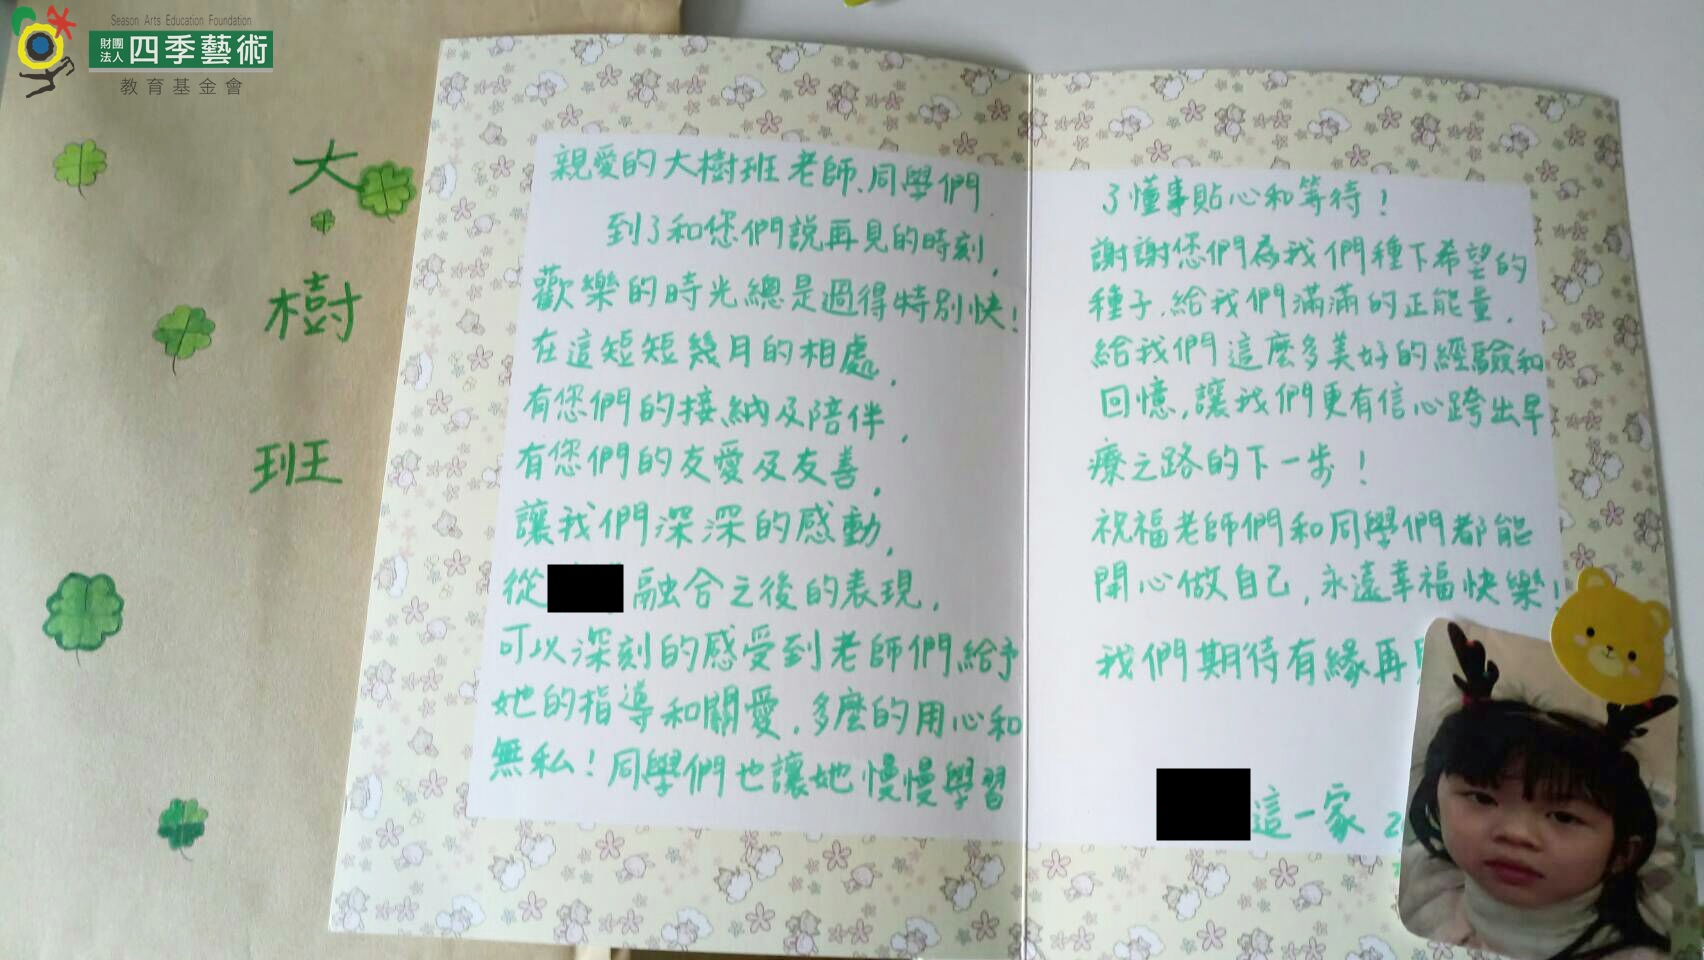 Season Arts Education Foundation
財團法人 四季藝術
教育基金會
大
樹
班
親愛的大樹班老師、同學們
到了和您們說再見的時刻,
歡樂的時光總是過得特別快!
在這短短幾月的相處,
有您們的接納及陪伴,
有您們的友愛及友善,
讓我們深深的感動,
從 融合之後的表現,
可以深刻的感受到老師們給予
她的指導和關愛,多麼的用心和
無私!同學們也讓她慢慢學習
了懂事貼心和等待!
謝謝您們為我們種下希望的
種子,給我們滿滿的正能量,
給我們這麼多美好的經驗和
回憶,讓我們更有信心跨出早
療之路的下一步!
祝福老師們和同學們都能
開心做自己,永遠幸福快樂!
我們期待有緣再
這一家 2